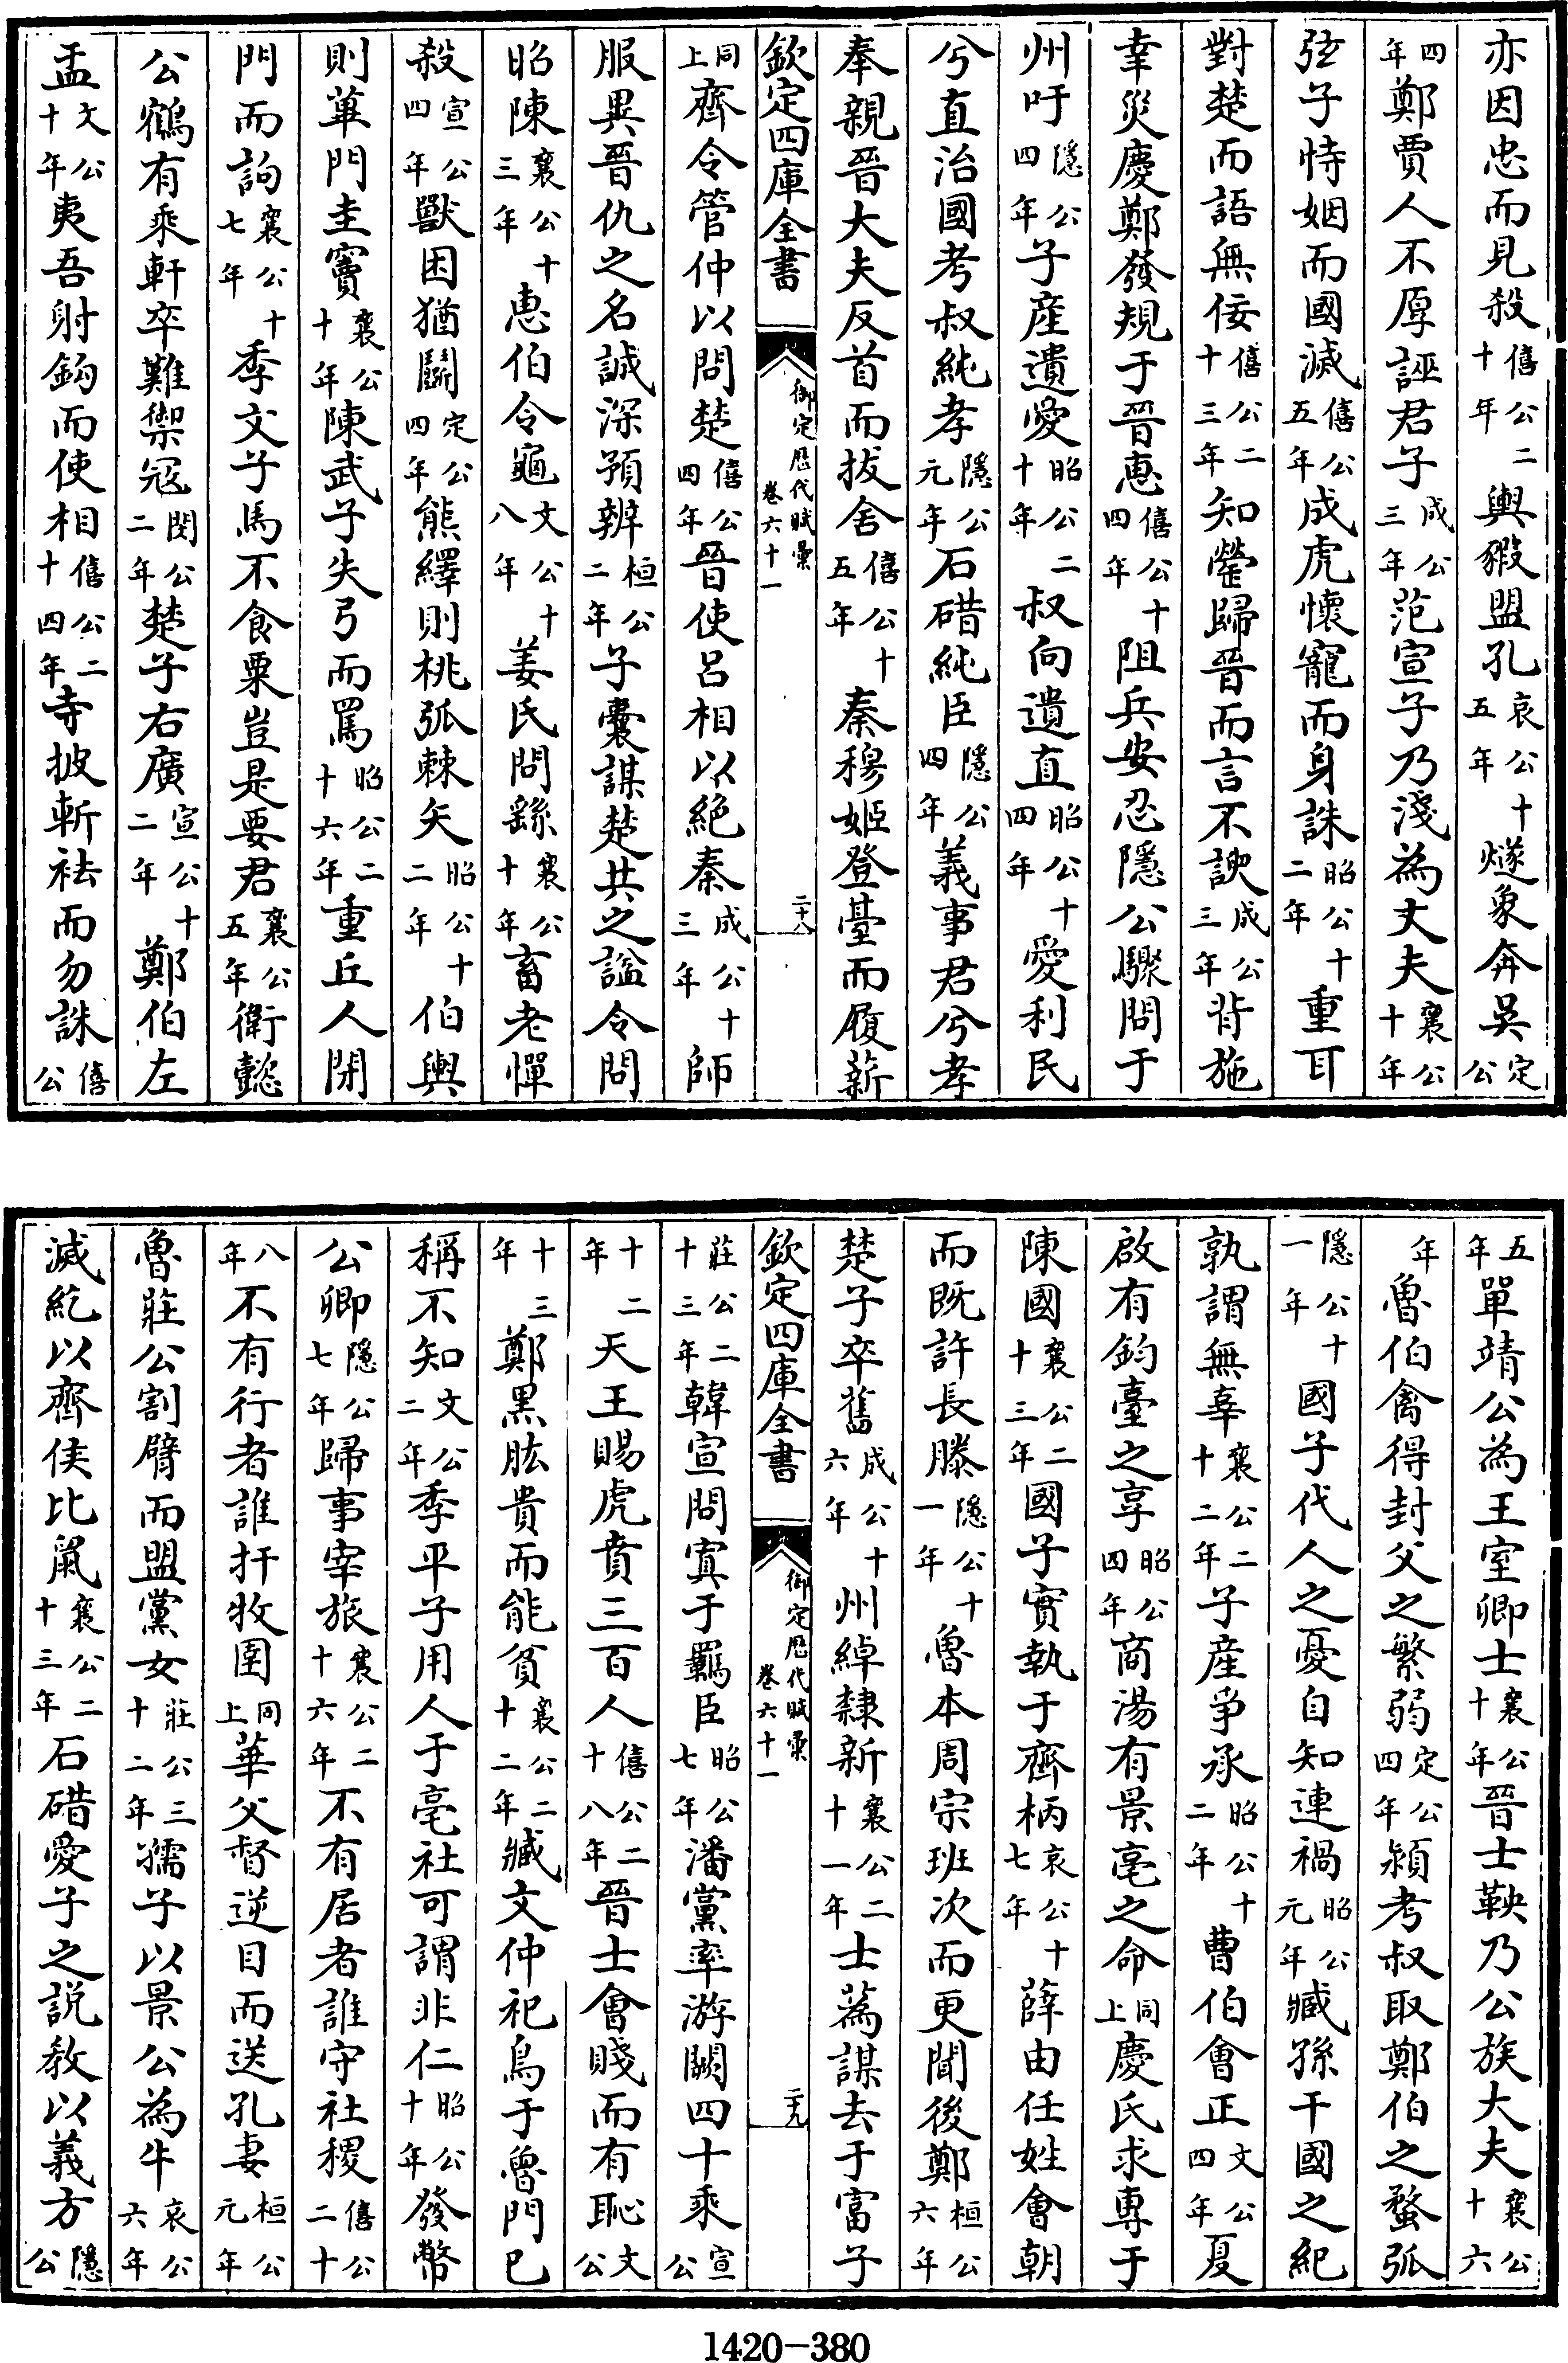 亦因忠而見殺僖公二十年輿豭盟孔哀公十五年燧象奔吳定公
四年鄭賈人不厚誣君子成公三年范宣子乃淺為丈夫襄公十年
弦子恃姻而國滅僖公五年成虎懷寵而身誅昭公十二年重耳
對楚而語無佞僖公二十三年知罃歸晉而言不諛成公三年背施
幸災慶鄭發規于晉惠僖公十四年阻兵安忍隱公驟問于
州吁隱公四年子產遺愛昭公二十年叔向遺直昭公十四年愛利民
兮直治國考叔純孝隱公元年石碏純臣隱公四年義事君兮孝
奉親晉大夫反首而拔舍僖公十五年秦穆姬登臺而履薪
欽定四庫全書 御定歷代賦彙 卷六十一 二十八
同上齊令管仲以問楚僖公四年晉使呂相以絶秦成公十三年師
服異晉仇之名誠深預辨桓公二年子囊謀楚共之諡令問
昭陳襄公十三年惠伯令龜文公十八年姜氏問繇襄公十年畜老憚
殺宣公四年獸困猶鬭定公四年熊繹則桃弧棘矢昭公十二年伯輿
則蓽門圭竇襄公十年陳武子失弓而罵昭公二十六年重丘人閉
門而詢襄公十七年季文子馬不食粟豈是要君襄公五年衛懿
公鶴有乘軒卒難禦冦閔公二年楚子右廣宣公十二年鄭伯左
盂文公十年夷吾射鈎而使相僖公二十四年寺披斬袪而勿誅僖公
五年單靖公為王室卿士襄公十年晉士鞅乃公族大夫襄公十六
年魯伯禽得封父之繁弱定公四年潁考叔取鄭伯之蝥弧
隱公十一年國子代人之憂自知連禍昭公元年臧孫干國之紀
孰謂無辜襄公二十二年子產爭承昭公十二年曹伯會正文公四年夏
啟有鈞臺之享昭公四年商湯有景亳之命同上慶氏求專于
陳國襄公二十三年國子實執于齊柄哀公十七年薛由任姓會朝
而既許長滕隱公十一年魯本周宗班次而更聞後鄭桓公六年
楚子卒舊成公十六年州綽隸新襄公二十一年士蒍謀去于富子
欽定四庫全書 御定歷代賦彙 卷六十一 二十九
莊公二十三年韓宣問寘于羈臣昭公七年潘黨率游闕四十乘宣公
十二年天王賜虎賁三百人僖公二十八年晉士會賤而有恥文公
十三年鄭黑肱貴而能貧襄公二十二年臧文仲祀鳥于魯門已
稱不知文公二年季平子用人于亳社可謂非仁昭公十年發幣
公卿隱公七年歸事宰旅襄公二十六年不有居者誰守社稷僖公二十
八年不有行者誰扞牧圉同上華父督逆目而送孔妻桓公元年
魯莊公割臂而盟黨女莊公三十二年孺子以景公為牛哀公六年
滅紇以齊侯比鼠襄公二十三年石碏愛子之説教以義方隱公
1420-380